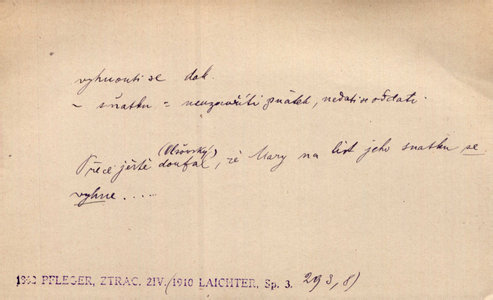 vyhnouti se dak.
~ sňatku = neuzavříti sňatek, nedati se oddati.
(Olšovský)
Přece ještě doufal, že Mary na list jeho snatku se
vyhne . . . .
1862 PFLEGER, ZTRAC. ZIV./1910 LAICHTER, Sp. 3. 293, 8)